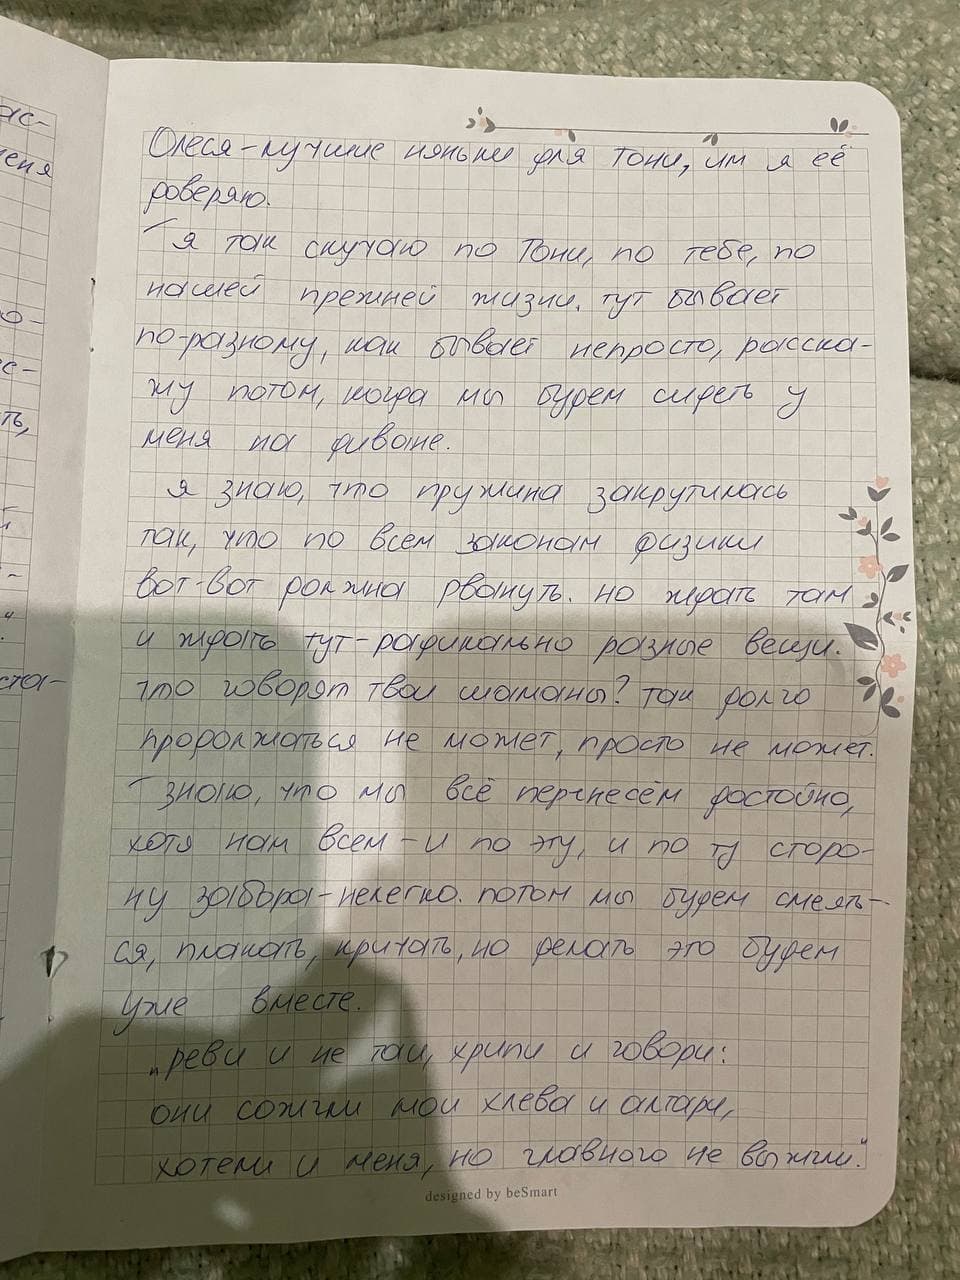 Олеся-лучшие няньки для Тони, им я её
доверяю.
я так скучаю по Тони, по тебе, по
нашей прежней жизни. тут бывает
по-разному, как бывает непросто, расска-
жу потом, когда мы будем сидеть у
меня на диване.
я знаю, что пружина закрутилась
так, что по всем законам физики
вот-вот должна рвануть. но ждать там
и ждать тут-радикально разные вещи.
что говорят твои шаманы? так долго
продолжаться не может, просто не может.
знаю, что мы всё перенесём достойно,
хотя нам всем-и по эту, и по ту сторо-
ну забора-нелегко. потом мы будем смеять-
ся, плакать, кричать, но делать это будем
уже вместе.
„реви и не таи, хрипи и говори:
они сожгли мои хлева и алтари,
хотели и меня, но главного не выжгли."
designed by beSmart
ас-
еня
о-
с-
ть,
ста-